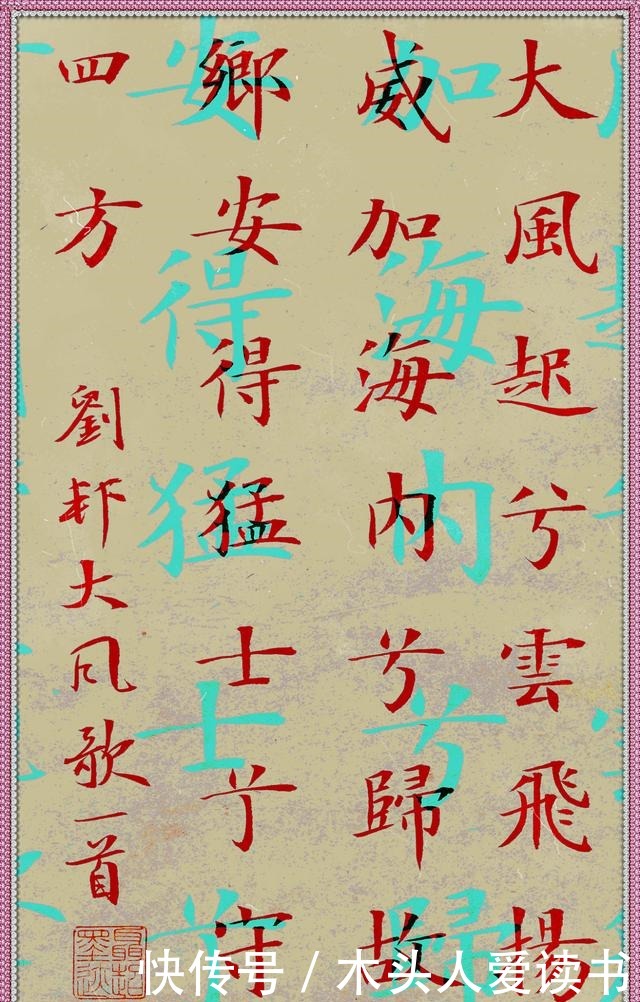 大風起兮雲飛揚
威加海内兮歸故
鄉安得猛士兮守
四方
劉邦大风歌一首
快传号/木头人爱读书